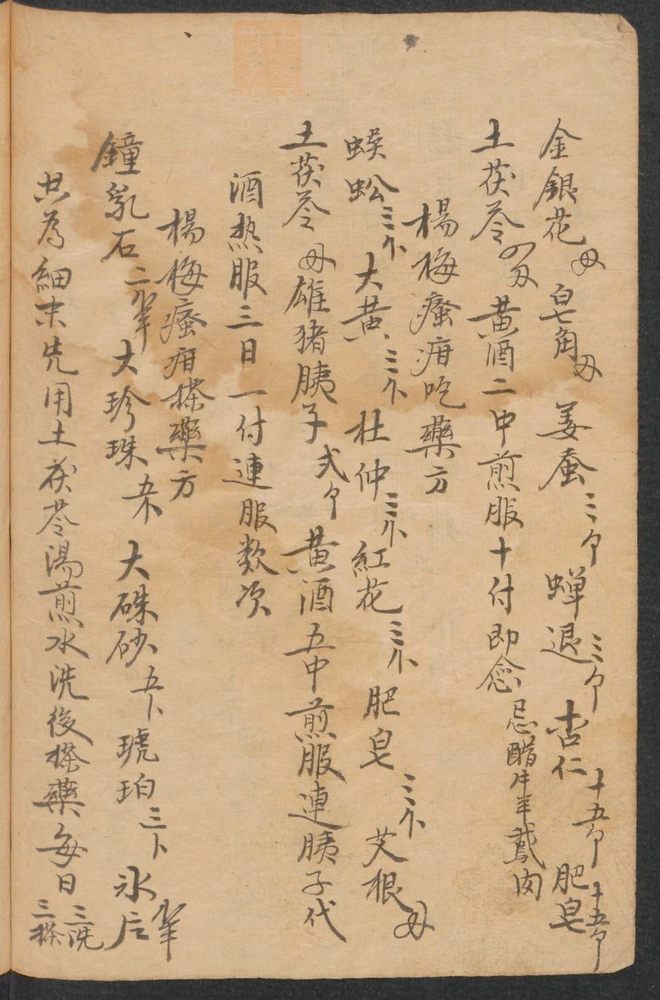 金銀花 皂角 姜蚕三个 蟬退三个 杏仁十五个 肥皂十五个
土茯苓 黄酒二中煎服十付即念 忌醋牛羊鵞肉
楊梅瘡疳吃藥方
蜈蚣三 大黄三 杜仲三 紅花三 肥皂三 艾根
土茯苓 雄猪胰子弍个 黄酒五中煎服連胰子代
酒热服三日一付連服数次
楊梅瘡疳搽藥方
鐘乳石二 大珍珠 大硃砂五卜 琥珀三卜 氷片
共為細末先用土茯苓湯煎水洗後搽藥每日三洗三搽